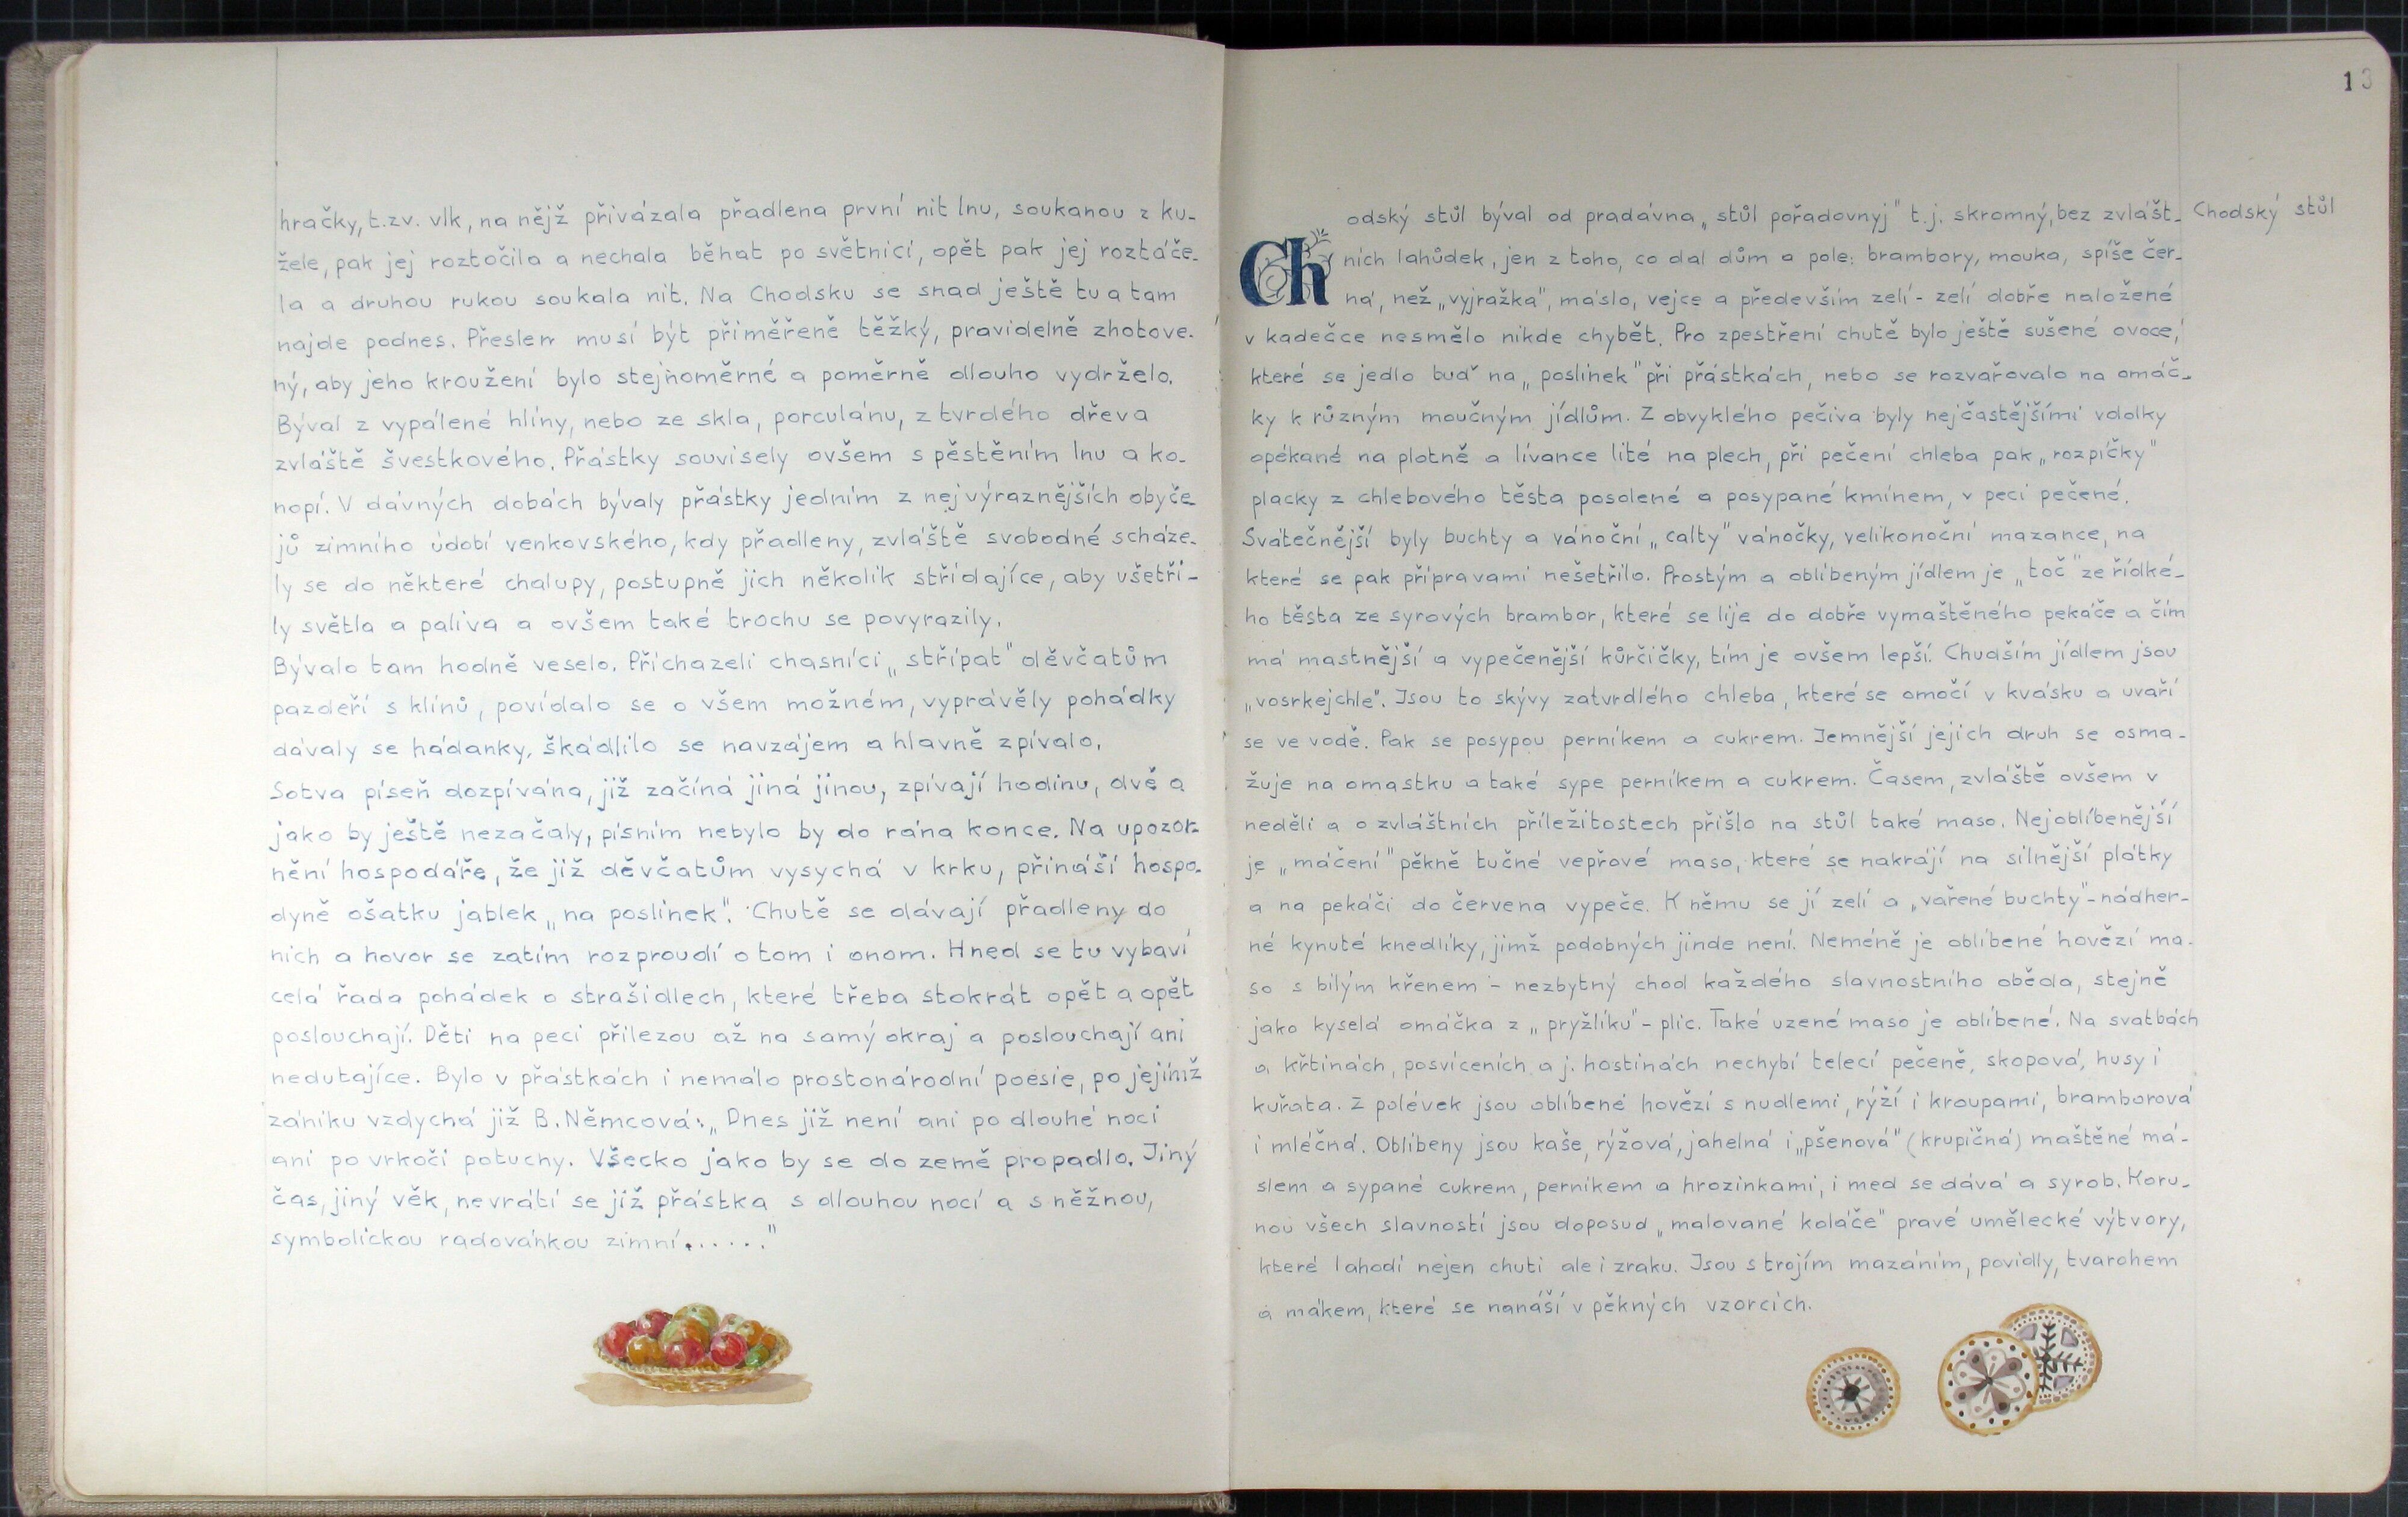 hračky, t.zv. vlk, na nějž přivázala přadlena první nit lnu, soukanou z ku-
žele, pak jej roztočila a nechala běhat po světnici, opět pak jej roztáče-
la a druhou rukou soukala nit. Na Chodsku se snad ještě tu a tam
najde podnes. Přeslen musí být přiměřeně těžký, pravidelně zhotove-
ný, aby jeho kroužení bylo stejnoměrné a poměrně dlouho vydrželo.
Býval z vypálené hlíny, nebo ze skla, porculánu, z tvrdého dřeva
zvláště švestkového. Přástky souvisely ovšem s pěstěním lnu a ko-
nopí. V dávných dobách bývaly přástky jedním z nejvýraznějších obyče-
jů zimního údobí venkovského, kdy přadleny, zvláště svobodné scháze-
ly se do některé chalupy, postupně jich několik střídajíce, aby ušetři-
ly světla a paliva a ovšem také trochu se povyrazily.
Bývalo tam hodně veselo. Přichazeli chasníci „střípat" děvčatům
pazdeří s klínů, povídalo se o všem možném, vyprávěly pohádky
dávaly se hádanky, škádlilo se navzájem a hlavně zpívalo.
Sotva píseň dozpívána, již začíná jiná jinou, zpívají hodinu, dvě a
jako by ještě nezačaly, písním nebylo by do rána konce. Na upozor-
nění hospodáře, že již děvčatům vysychá v krku, přináší hospo-
dyně ošatku jablek „na poslinek". Chutě se dávají přadleny do
nich a hovor se zatím rozproudí o tom i onom. Hned se tu vybaví
celá řada pohádek o strašidlech, které třeba stokrát opět a opět
poslouchají. Děti na peci přilezou až na samý okraj a poslouchají ani
nedutajíce. Bylo v přástkách i nemálo prostonárodní poesie, po jejímž
zániku vzdychá již B. Němcová: „Dnes již není ani po dlouhé noci
ani po vrkoči potuchy. Všecko jako by se do země propadlo. Jiný
čas, jiný věk, nevrátí se již přástka s dlouhou nocí a s něžnou,
symbolickou radovánkou zimní......"
13
Chodský stůl
Chodský stůl býval od pradávna „stůl pořadovnyj" t.j. skromný, bez zvlášt-
ních lahůdek, jen z toho, co dal dům a pole: brambory, mouka, spíše čer-
ná, než „vyjražka", máslo, vejce a především zelí - zelí dobře naložené
v kadečce nesmělo nikde chybět. Pro zpestření chutě bylo ještě sušené ovoce,
které se jedlo buď na „poslinek" při přástkách, nebo se rozvařovalo na omáč-
ky k různým moučným jídlům. Z obvyklého pečiva byly nejčastějšími vdolky
opékané na plotně a lívance lité na plech, při pečení chleba pak „rozpíčky"
placky z chlebového těsta posolené a posypané kmínem, v peci pečené.
Svátečnější byly buchty a vánoční „calty" vánočky, velikonoční mazance, na
které se pak přípravami nešetřilo. Prostým a oblíbeným jídlem je „toč" ze řídké-
ho těsta ze syrových brambor, které se lije do dobře vymaštěného pekáče a čím
má mastnější a vypečenější kůrčičky, tím je ovšem lepší. Chudším jídlem jsou
„vosrkejchle". Jsou to skývy zatvrdlého chleba, které se omočí v kvásku a uvaří
se ve vodě. Pak se posypou perníkem a cukrem. Jemnější jejich druh se osma-
žuje na omastku a také sype perníkem a cukrem. Časem, zvláště ovšem v
neděli a o zvláštních příležitostech přišlo na stůl také maso. Nejoblíbenější
je „máčení" pěkně tučné vepřové maso, které se nakrájí na silnější plátky
a na pekáči do červena vypeče. K němu se jí zelí a „vařené buchty" - nádher-
né kynuté knedlíky, jimž podobných jinde není. Neméně je oblíbené hovězí ma-
so s bílým křenem - nezbytný chod každého slavnostního oběda, stejně
jako kyselá omáčka z „pryžlíku" - plic. Také uzené maso je oblíbené. Na svatbách
a křtinách, posvíceních a j. hostinách nechybí telecí pečeně, skopová, husy i
kuřata. Z polévek jsou oblíbené hovězí s nudlemi, rýží i kroupami, bramborová
i mléčná. Oblíbeny jsou kaše, rýžová, jahelná i „pšenová" (krupičná) maštěné má-
slem a sypané cukrem, perníkem a hrozinkami, i med se dává a syrob. Koru-
nou všech slavností jsou doposud „malované koláče" pravé umělecké výtvory,
které lahodí nejen chuti ale i zraku. Jsou s trojím mazáním, povidly, tvarohem
a mákem, které se nanáší v pěkných vzorcích.